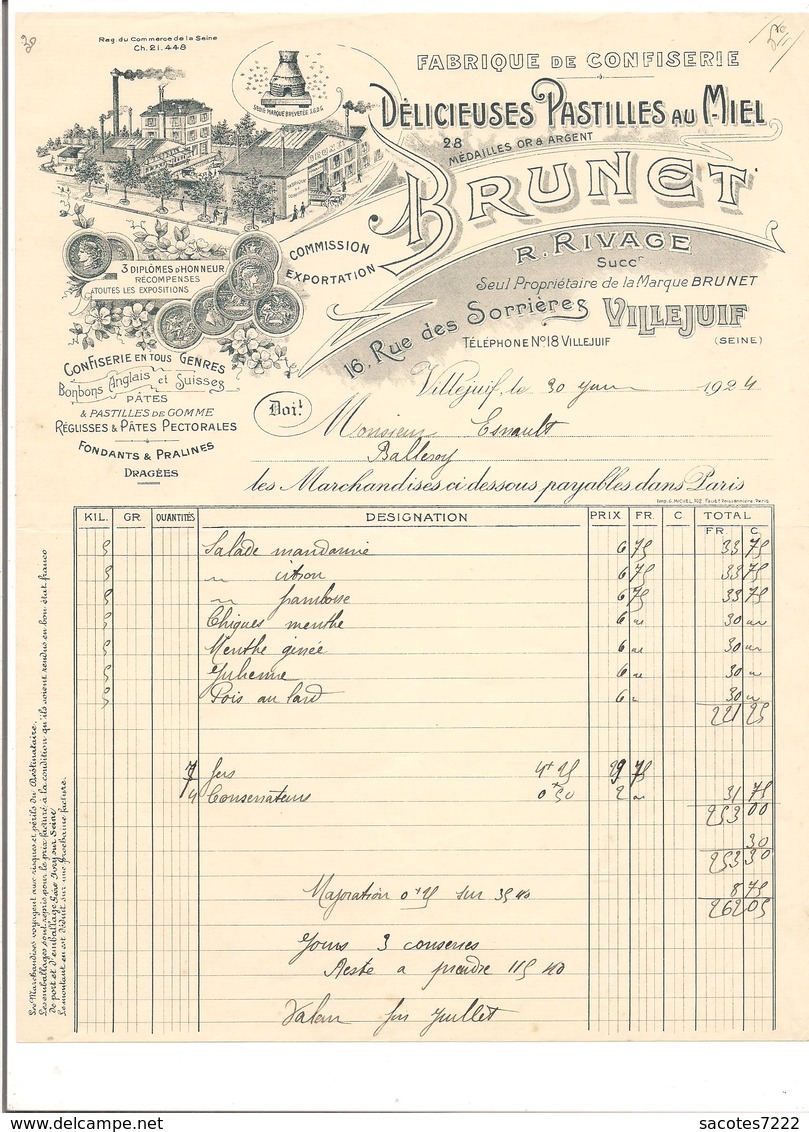 Reg. du Commerce de la Seine
Ch. 21.448
SEULE MARQUE BREVETÉE S.G.D.G
BRUNET
FABRIQUE DE CONFISERIE
DÉLICIEUSES PASTILLES AU MIEL
28
MÉDAILLES OR & ARGENT
BRUNET
R. RIVAGE
SUCCr
Seul Propriétaire de la Marque BRUNET
16, Rue des Sorrières VILLEJUIF
TÉLÉPHONE No 18 VILLEJUIF (SEINE)
COMMISSION
EXPORTATION
3 DIPLÔMES D'HONNEUR
RÉCOMPENSES
À TOUTES LES EXPOSITIONS
CONFISERIE EN TOUS GENRES
Bonbons Anglais et Suisses
PÂTES
& PASTILLES DE GOMME
RÉGLISSES & PÂTES PECTORALES
FONDANTS & PRALINES
DRAGÉES
Villejuif, le 30 1924
Doit
Monsieur Esnault
Balleroy
les Marchandises ci dessous payables dans Paris
Imp. G. MICHEL, 102, Faubg Poissonnière, Paris
KIL. GR. QUANTITÉS DESIGNATION PRIX FR. C TOTAL
FR. C.
5 Salade mandarine 6 75 33 75
5 " citron 6 75 33 75
5 " framboise 6 75 33 75
5 Chiques menthe 6 " 30 "
5 Menthe 6 " 30 "
5 Julienne 6 " 30 "
5 Pois au lard 6 " 30 "
221 25
7 fers 4f 25 29 75
4 Conservateurs 0f 50 2 " 31 75
253 00
30
253 30
Majoration 0f 25 sur 35 8 75
262 05
3
Reste a prendre 115
Valeur fin Juillet
Les Marchandises voyagent aux risques et périls du Destinataire.
Les emballages sont repris pour le prix facturé à la condition qu'ils soient rendus en bon état franco
de port et d'emballage Gare Ivry sur Seine
Le montant en est déduit sur une prochaine facture.
delcampe.net
sacotes7222